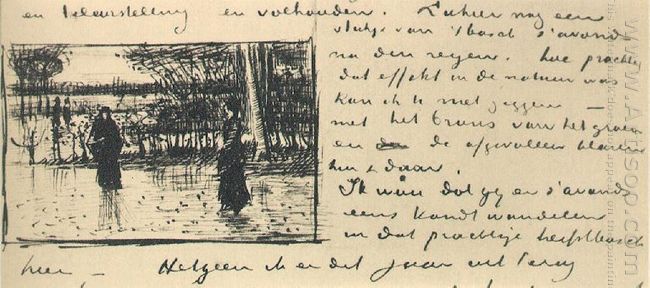 en teleurstelling en volhouden. Ziehier nog een
stukje van 't bosch s'avonds
na den regen. hoe prachtig
dat effekt in de natuur was
kan ik U niet zeggen —
met het brons van het groen
en de afgevallen blaren
hier & daar.
Ik wou dat gij er s'avonds
eens kondt wandelen
in dat prachtige herfstbosch
hier — Hetgeen ik er dit jaar uit